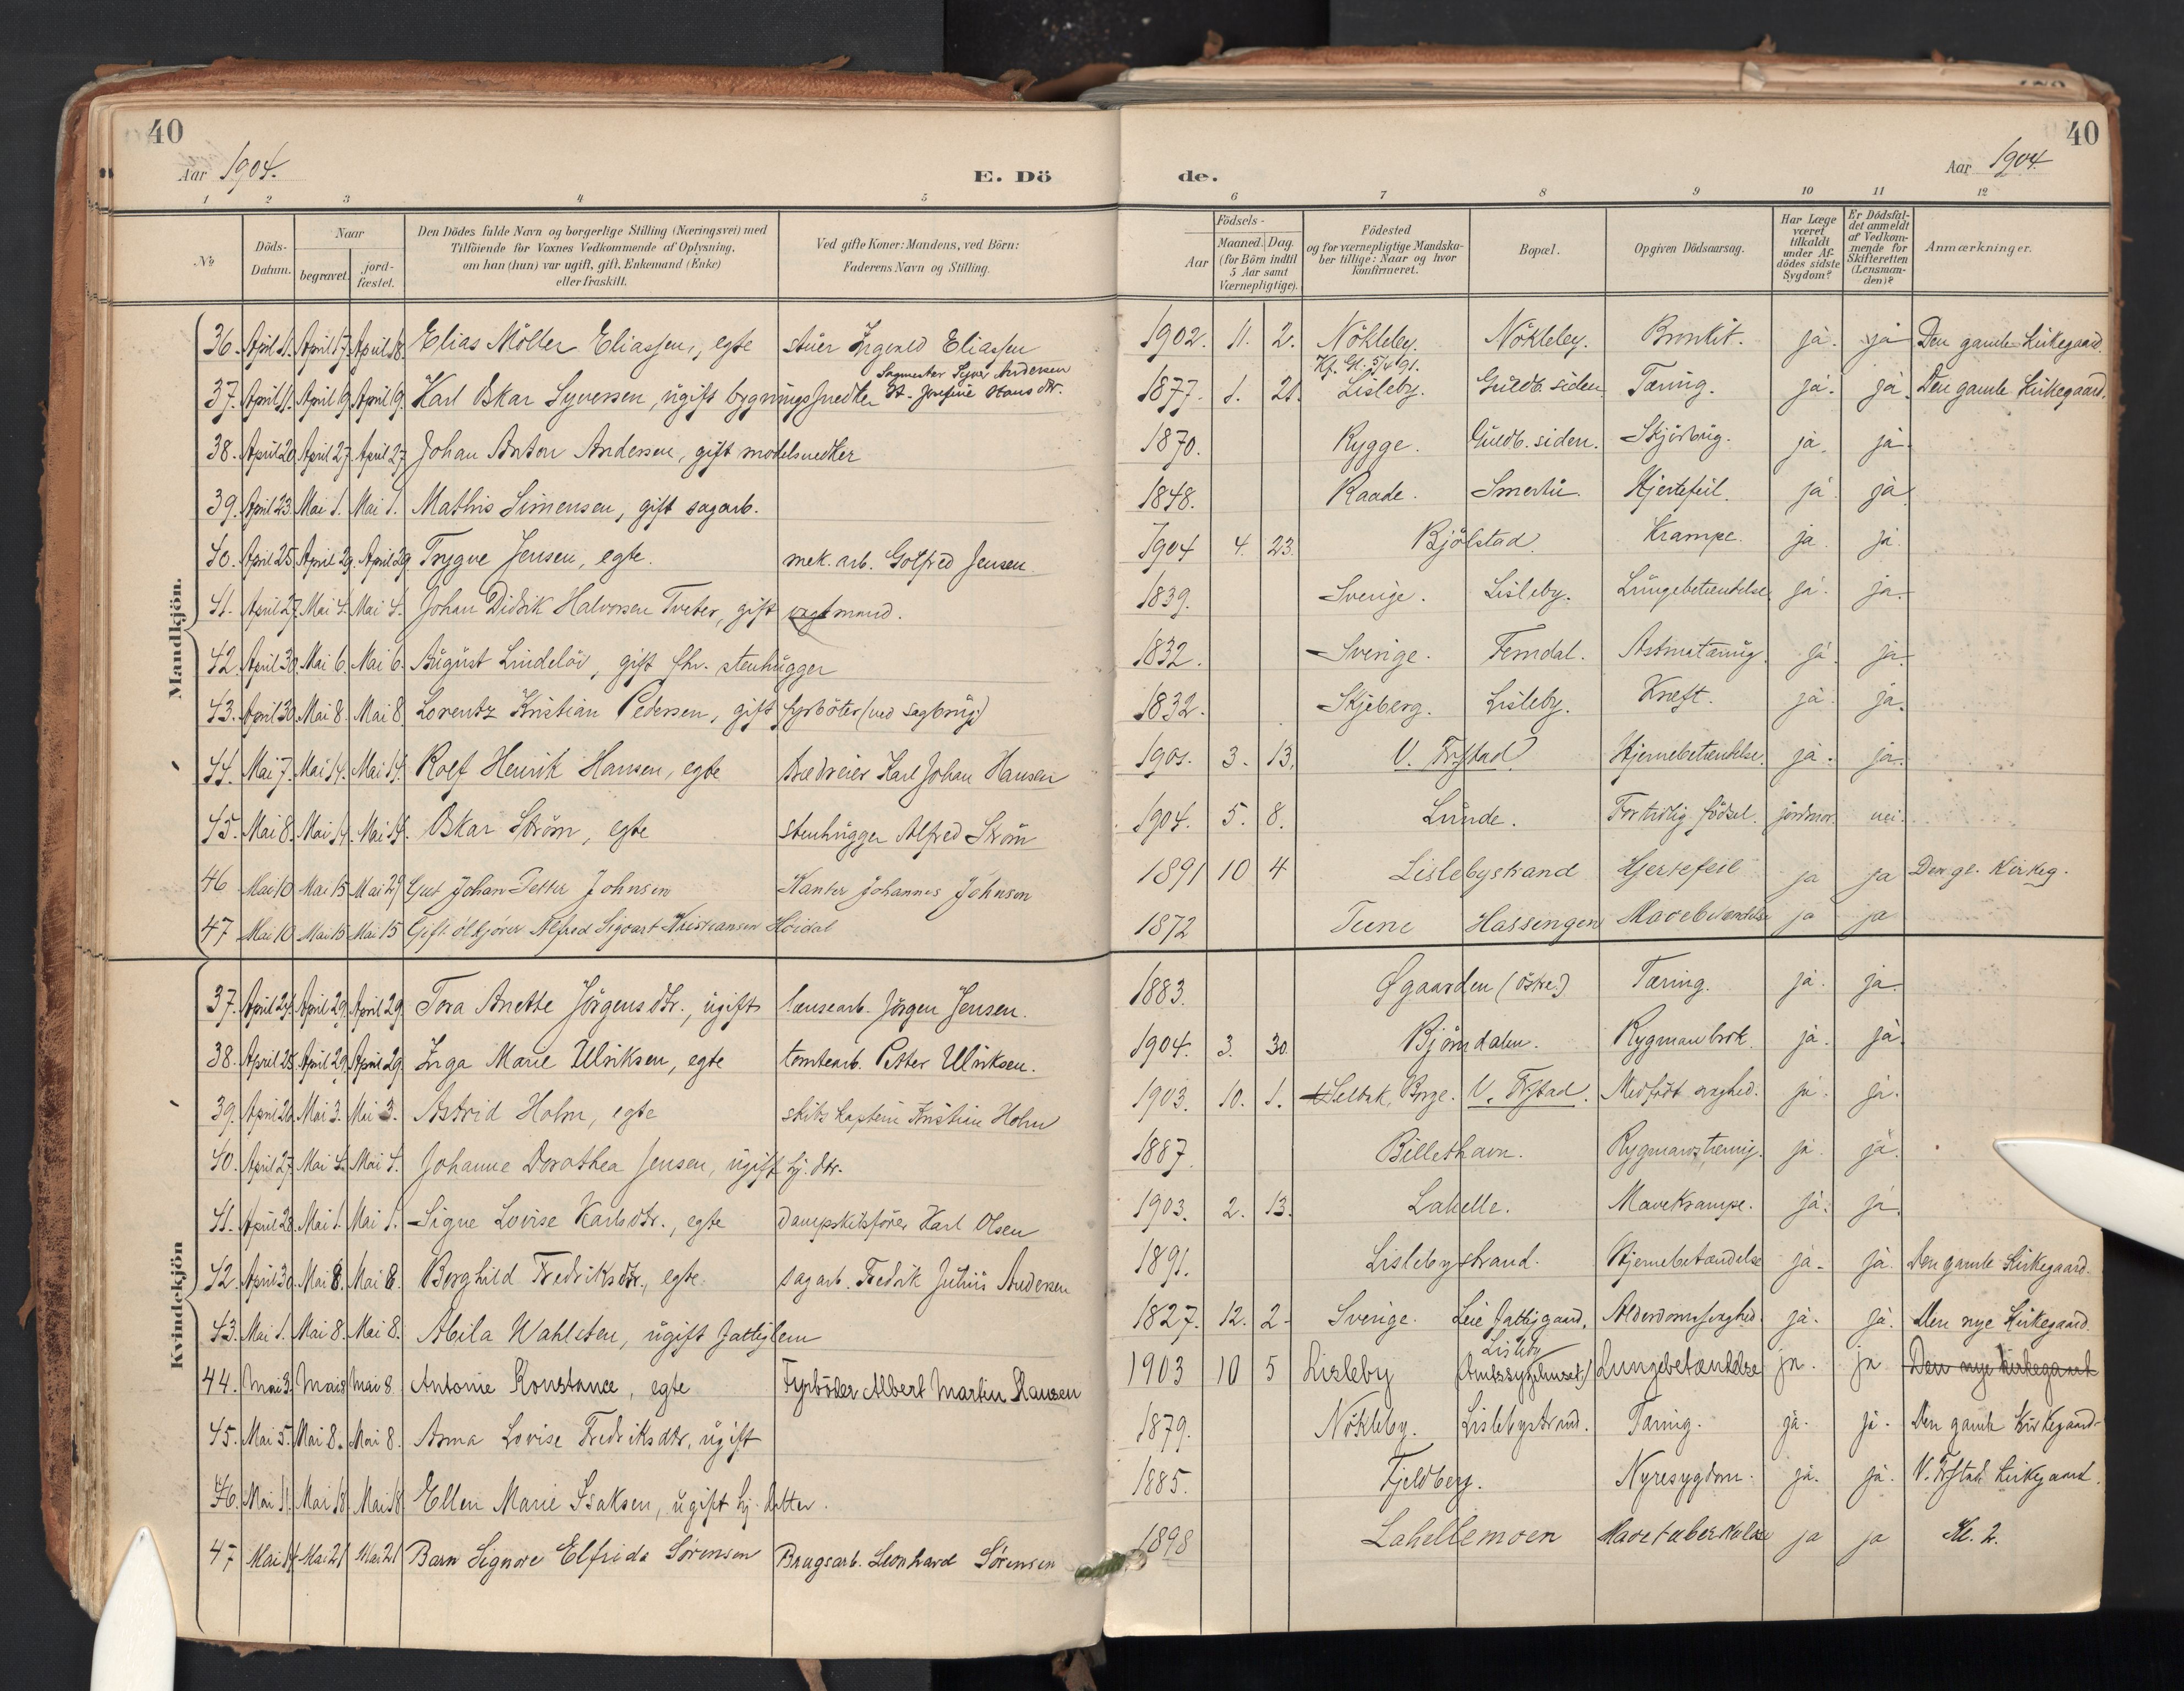 40
Aar 1904.
E. Dö
1 2 3 4 5
No
Döds-Datum.
Naar
begravet.
jord-fæstet.
Den Dödes fulde Navn og borgerlige Stilling (Næringsvei) med
Tilföiende for Voxnes Vedkommende af Oplysning,
om han (hun) var ugift, gift, Enkemand (Enke)
eller fraskilt.
Ved gifte Koner: Mandens, ved Börn:
Faderens Navn og Stilling.
Mandkjön.
36. April 11. April 17. April 18. Elias Möller Eliassen, egte stuer Ingvald Eliassen
Sagmester Syver Andersen
37. April 11. April 19. April 19. Karl Oskar Syversen, ugift bygningssnedker H. Josefine Hansdtr.
38. April 20. April 27. April 27. Johan Anton Andersen, gift modelsnedker
39. April 23. Mai 1. Mai 1. Mathis Simensen, gift sagarb.
40. April 25. April 29. April 29. Trygve Jensen, egte. mek. arb. Golfred Jensen.
41. April 27. Mai 4. Mai 4. Johan Didrik Halvorsen Tveter, gift vagtmand.
42. April 30. Mai 6. Mai 6. August Lindelöv, gift fhv. stenhugger
43. April 30. Mai 8. Mai 8. Lorentz Kristian Pedersen, gift fyrböter (ved sagbrug)
44. Mai 7. Mai 14. Mai 14. Rolf Henrik Hansen, egte trædreier Karl Johan Hansen
45. Mai 8. Mai 14. Mai 14. Oskar Ström, egte stenhugger Alfred Ström
46 Mai 10 Mai 15 Mai 29 Gut Johan Petter Johnsen Kanter Johannes Johnson
47 Mai 10 Mai 15 Mai 15 Gift ölkjörer Alfred Sigvart Kristiansen Höidal
Kvindekjön
37. April 24. April 29. April 29. Tora Anette Jörgensdtr., ugift lænsearb. Jörgen Jensen.
38. April 25. April 29. April 29. Inga Marie Ulriksen, egte tomtearb. Petter Ulriksen.
39. April 26. Mai 3. Mai 3. Astrid Holm, egte skibskaptein Kristian Holm
40. April 27. Mai 4. Mai 4. Johanne Dorothea Jensen, ugift hj. dtr.
41. April 28. Mai 1. Mai 1. Signe Lovise Karlsdtr., egte Dampskibsförer Karl Olsen
42. April 30. Mai 8. Mai 8. Borghild Fredriksdtr., egte sagarb. Fredrik Julius Andersen
43. Mai 1. Mai 8. Mai 8. Abila Wahlsten, ugift fattiglem
44. Mai 3. Mai 8 Mai 8. Antonie Konstance, egte Fyrböder Albert Martin Hansen
45. Mai 5. Mai 8. Mai 8. Anna Lovise Fredriksdtr, ugift
46. Mai 11. Mai 18. Mai 18. Ellen Marie Isaksen, ugift hj. datter.
47 Mai 14 Mai 21 Mai 21 Barn Signore Elfrida Sörensen Brugsarb. Leonhard Sörensen
40
de.
Aar 1904.
6 7 8 9 10 11 12
Födsels-
Aar
Maaned. Dag.
(for Börn indtil
5 Aar samt
Værnepligtige).
Födested
og for værnepligtige Mandska-
ber tillige: Naar og hvor
konfirmeret.
Bopæl.
Opgiven Dödsaarsag.
Har Læge
været
tilkaldt
under Af-
dödes sidste
Sygdom?
Er Dödsfal-
det anmeldt
af Vedkom-
mende for
Skifteretten
(Lensman-
den)?
Anmærkninger.
1902. 11. 2. Nökleby. Nökleby. Bronkit. ja. ja Den gamle Kirkegaard.
Kf. Gl. 5/4 91.
1877. 1. 21. Lisleby. Guldb. siden Tæring. ja. ja. Den gamle Kirkegaard.
1870. Rygge. Guldb. siden. ja. ja.
1848. Raade. Smertu. Hjertefeil. ja ja.
1904 4. 23. Bjölstad. Krampe. ja. ja.
1839. Sverige. Lisleby. Lungebetændelse ja. ja.
1832. Sverige. Femdal. ja. ja.
1832. Skjeberg. Lisleby. Kræft. ja. ja.
1901. 3. 13. V. Frstad. Hjernebetændelse. ja. ja.
1904. 5. 8. Lunde. Fortidlig födsel. jordmor. nei.
1891 10 4 Lislebystrand Hjertefeil ja ja Den gl. Kirkeg.
1872 Tune Hassengen Mavebetændelse ja ja
1883. Ögaarden (östre.) Tæring. ja. ja.
1904. 3. 30. Björndalen. Rygmarvbrok. ja. ja.
1903. 10. 1. Selbak, Borge. V. Frstad. Medfödt svaghed. ja. ja.
1887. Billethavn. Rygmarvstæring. ja. ja.
1903. 2. 13. Lahelle. Mavekrampe. ja. ja.
1891. Lislebystrand. Hjernebetændelse ja. ja. Den gamle Kirkegaard.
1827. 12. 2. Sverige. Leie fattiggaard. Alderdomssvaghed. ja. ja. Den nye Kirkegaard.
Lisleby
1903 10 5 Lisleby (Amtssygehuset) Lungebetændelse ja. ja Den nye kirkegaard
1879. Nökleby. Lislebystrand. Tæring. ja. ja. Den gamle Kirkegaard.
1885. Fjeldberg. Nyresygdom. ja. ja. V. Frstad Kirkegaard.
1898 Lahellemoen Mavetuberkulose ja ja Kl. 2.